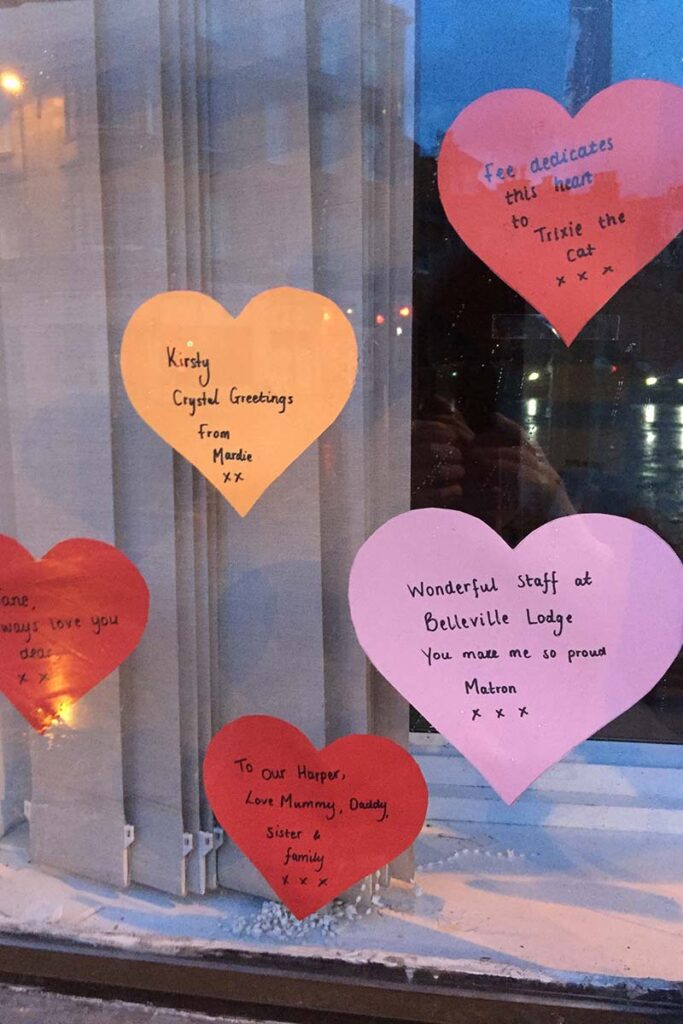 Fee dedicates
this heart
to
Trixie the
Cat
x x x
Kirsty
Crystal Greetings
From
Mardie
x x
Wonderful Staff at
Belleville Lodge
You make me so proud
Matron
x x x
love you
dear
x x
To Our Harper,
Love Mummy, Daddy,
Sister &
family
x x x